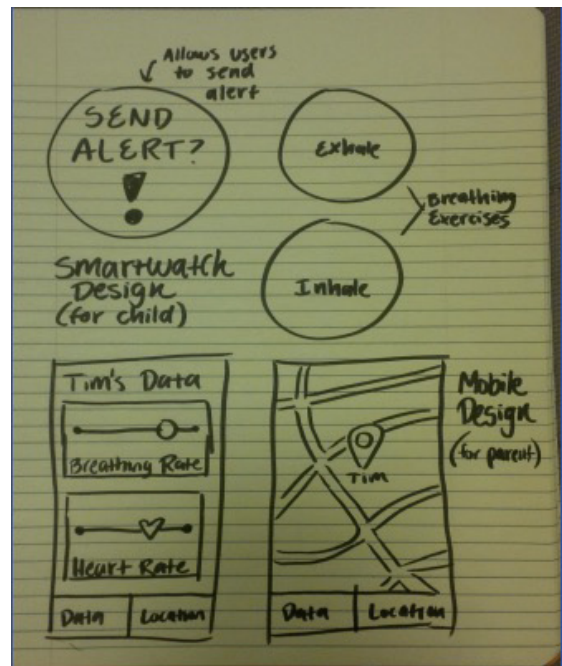 Allows users
to send
alert
SEND
ALERT?
!
Exhale
Breathing
Exercises
Inhale
Smartwatch
Design
(for child)
Tim's Data
Breathing Rate
Heart Rate
Data Location
Mobile
Design
(for parent)
Tim
Data Location